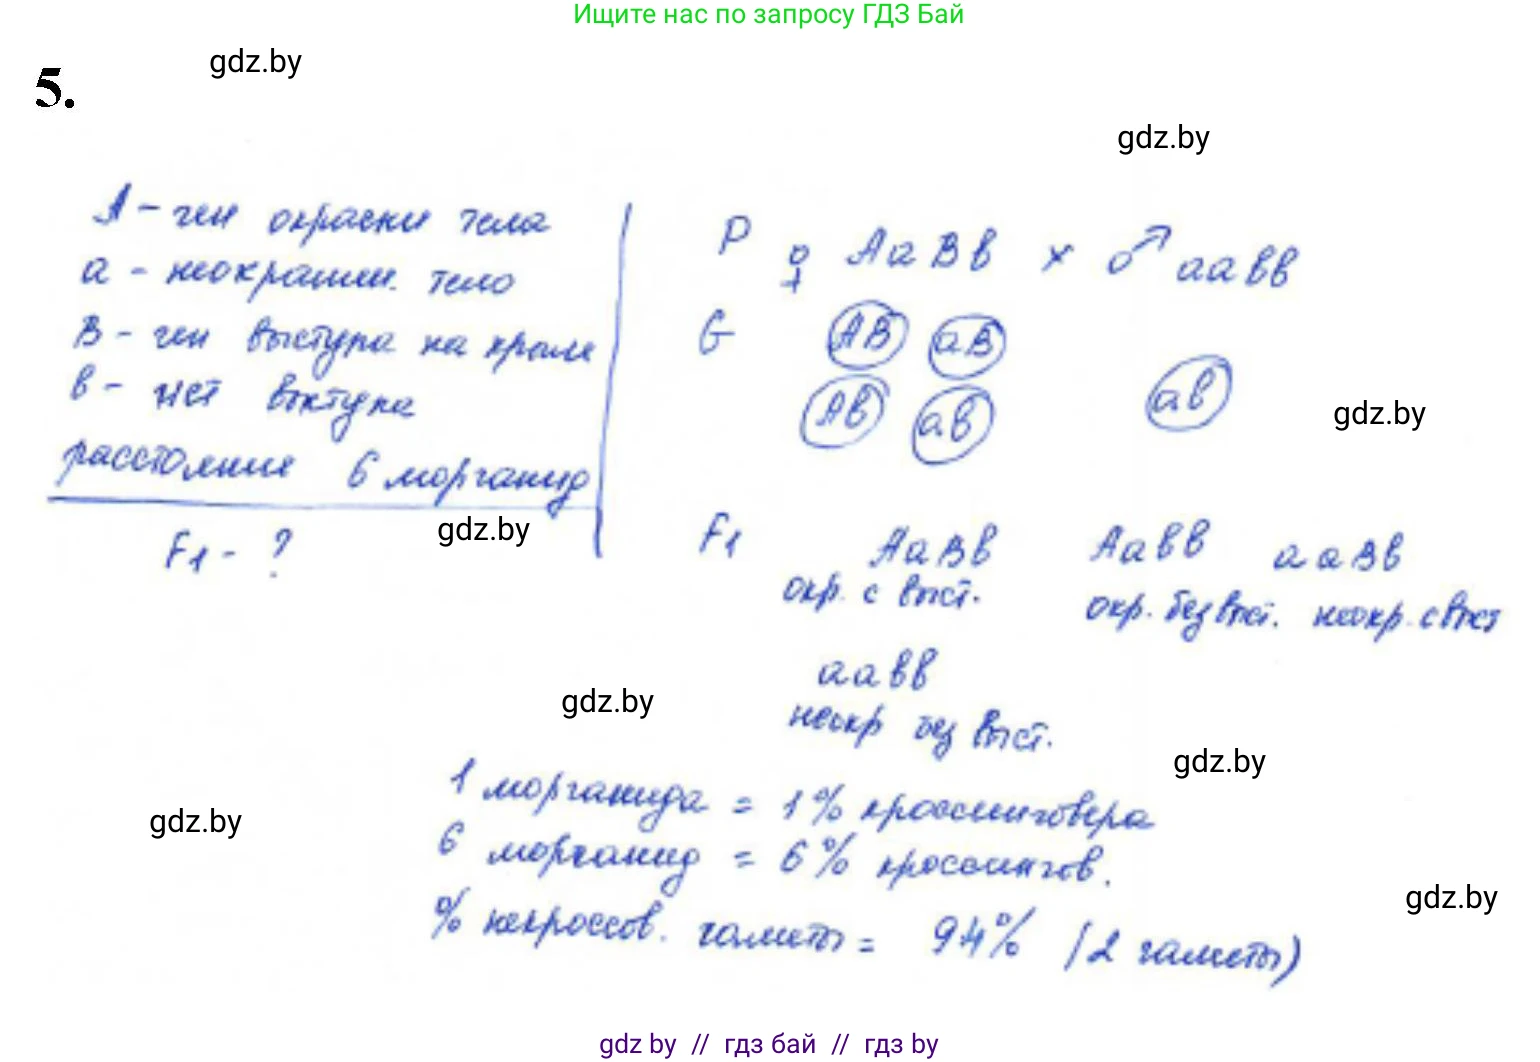 Ищите нас по запросу ГДЗ Бай
gdz.by
5.
gdz.by
А - ген окраски тела
а - неокрашен. тело
В - ген выступа на крыле
в - нет выступа
расстояние 6 морганид
F1 - ?
gdz.by
P ♀ АаВв × ♂ аавв
G АВ аВ
Ав ав ав
gdz.by
F1 АаВв Аавв ааВв
окр. с выст. окр. без выст. неокр. с выст
аавв
неокр без выст.
gdz.by
gdz.by
1 морганида = 1% кроссинговера
gdz.by
6 морганид = 6% кроссингов.
gdz.by
% некроссов. гаметы = 94% (2 гаметы)
gdz by // гдз бай // гдз by